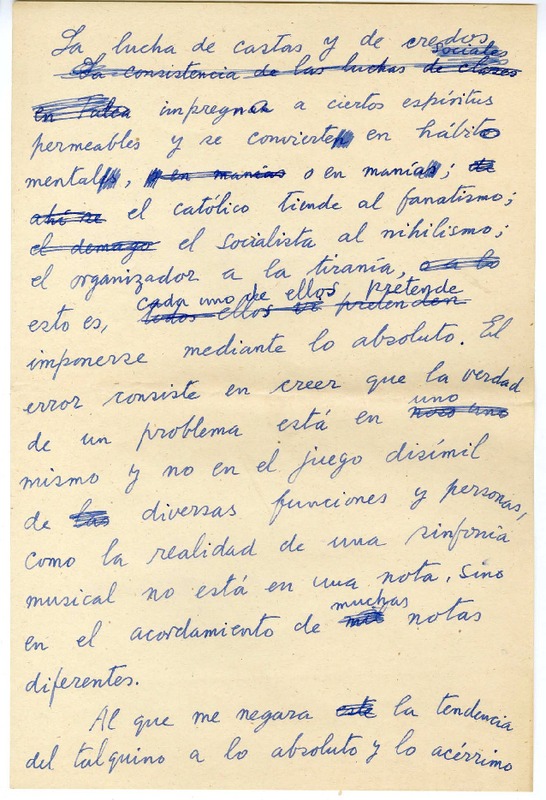 La lucha de castas y de credos
sociales
La consistencia de las luchas de clases
en Talca impregna a ciertos espíritus
permeables y se convierte en hábito
mental, en manías o en manía; de
ahí se el católico tiende al fanatismo;
el demago el socialista al nihilismo;
el organizador a la tiranía, o a lo
cada uno de ellos pretende
esto es, todos ellos se pretenden
imponerse mediante lo absoluto. El
error consiste en creer que la verdad
uno
de un problema está en
mismo y no en el juego disímil
de las diversas funciones y personas,
como la realidad de una sinfonía
musical no está en una nota, sino
muchas
en el acordamiento de mil notas
diferentes.
Al que me negara este la tendencia
del talquino a lo absoluto y lo acérrimo